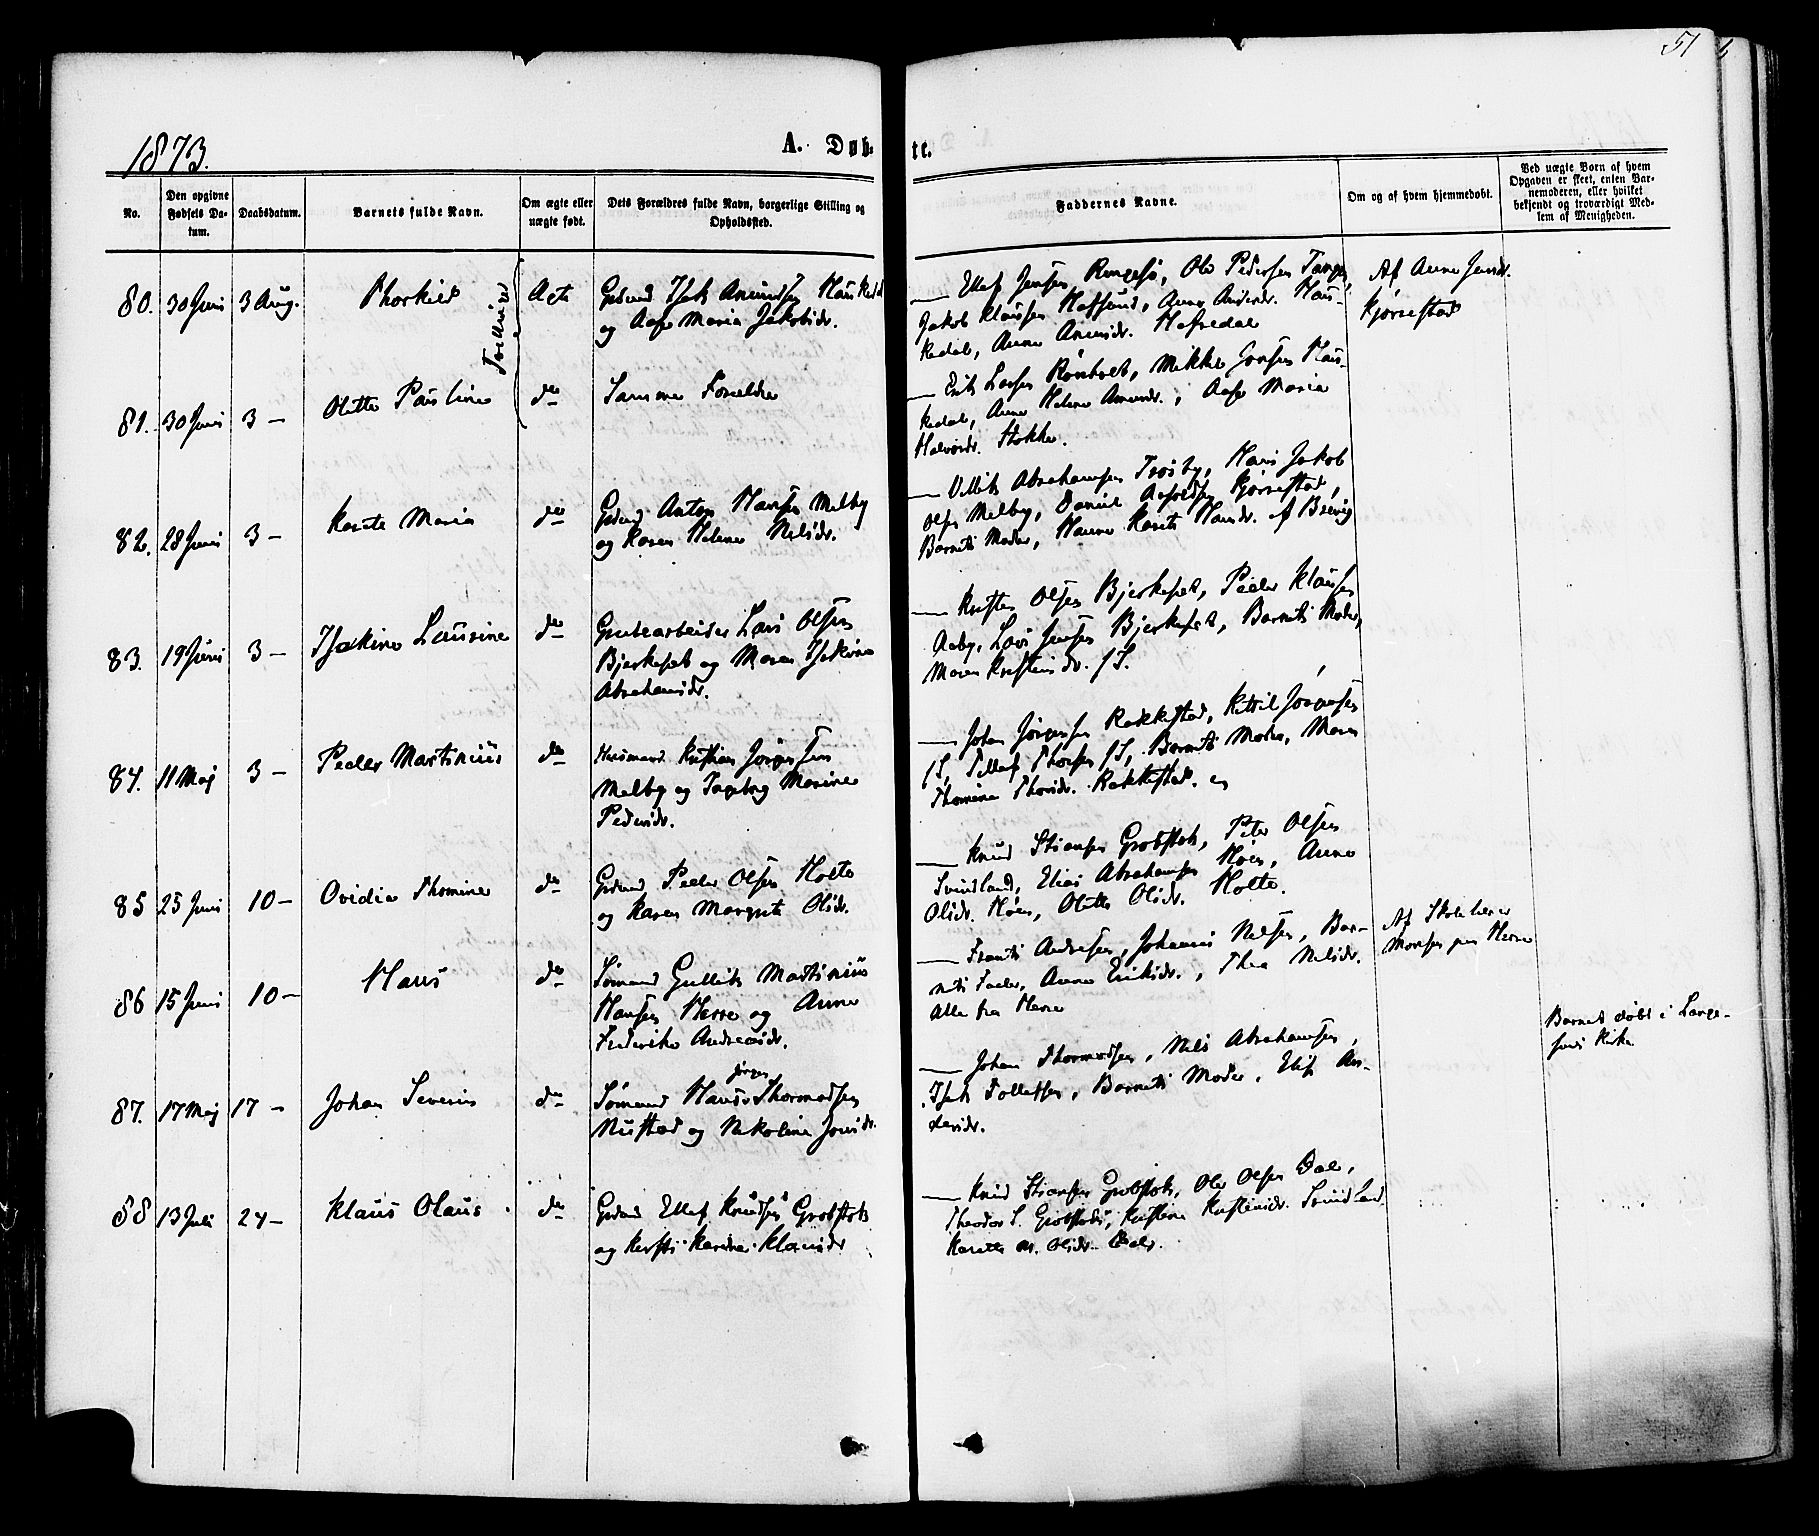 51
1873.
A. Døb-
te.
No.
Den opgivne Fødsels Da-
tum.
Daabsdatum.
Barnets fulde Navn.
Om ægte eller
uægte født.
Dets Forældres fulde Navn, borgerlige Stilling og
Opholdssted.
Faddernes Navne.
Om og af hvem hjemmedøbt.
Ved uægte Børn af hvem
Opgaven er skeet, enten Bar-
nemoderen, eller hvilket
bekjendt og troværdigt Med-
lem af Menigheden.
80. 30 Juni 3 Aug. Thorkild
Tvillinger
Ægte
Gdmd Isak Amundsen Haukedal
og Aase Maria Jakobsdr.
Ellef Jensen Rongesø, Ole Pedersen Tangen,
Jakob Klausen Hafsund, Anne Andersdr. Hau-
kedal, Anne Amundsdr. Hafredal
Af Anne Jensdr.
Kjørrestad
81. 30 Juni 3 – Olette Pauline do
Samme Forældre
Erik Larsen Rønholt, Mikkel Hau-
kedal, Anne Helene Amundsdr., Aase Maria
Halvorsdr. Stokke.
82. 28 Juni 3 – Karete Maria do
Gdmd Anton Hansen Melby
og Karen Helene Nilsdr.
Abrahamsen Trosby, Hans Jakob
Olsen Melby, Daniel Kjørrestad,
Barnets Moder, Hanne Karete Hansdr. af Brevig
83. 19 Juni 3 – Isakine Laurine do
Grubearbeider Lars Olsen
Bjerkeset og Maren Isakine
Abrahamsdr.
Kristen Olsen Bjerkeset, Peder Klausen
Aaby, Lars Jensen Bjerkeset, Barnets Moder,
Maren Kristensdr. f S.
84. 11 Maj 3 – Peder Martinius do
Husmand Kristian Jørgensen
Melby og Ingeborg Maria
Pedersdr.
Johan Jørgensen Rakkestad, Kittil Jørgensen
f S, Tellef Thorsen f S, Barnets Moder, Maren
Thomine Thorsdr. Rakkestad.
85 25 Juni 10 – Ovidia Thomine do
Gdmd Peder Olsen Holte
og Karen Margrete Olsdr.
Knud Stiansen Grobstok, Peter Olsen
Svindland, Elias Abrahamsen Høen, Anne
Olsdr. Høen, Olette Olsdr. Holte.
86 15 Juni 10 – Hans do
Sømand Gullik Martinius
Hansen Herre og Anne
Frederike Andreasdr.
Frants Andresen, Johannes Nilsen, Bar-
nets Fader, Anne Eriksdr., Thea Nilsdr.
Alle fra Herre
Af Skolelærer
paa Herre
87. 17 Maj 17 – Johan Severin do
Jørgen
Sømand Hans Thormodsen
Rustad og Nikoline Jonsdr.
Johan Thormodsen, Nils Abrahamsen,
Isak Tollefsen, Barnets Moder, An-
dersdr.
Barnet døbt i Lange-
sunds Kirke
88 13 Juli 24 – Klaus Olaus do
Gdmd Ellef Knudsen Grobstok
og Kirsti Karine Klausdr
Knud Stiansen Grobstok, Ole Olsen Dal,
Theodor S. Grobstok, Kristine Kristensdr. Svindland
Karete M. Olsdr Dal.